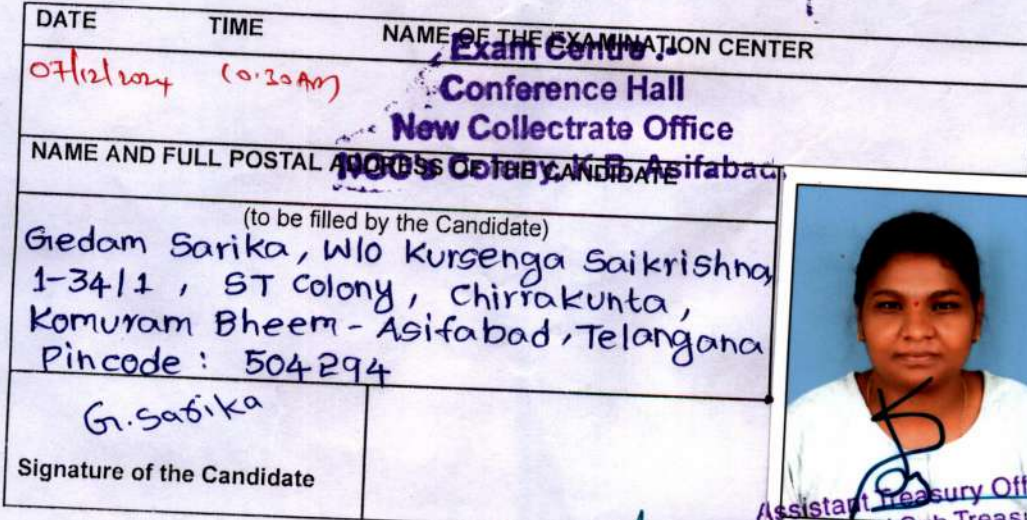 DATE TIME NAME OF THE EXAMINATION CENTER
07/12/2024 10:30 AM
Exam Centre :-
Conference Hall
New Collectrate Office
Colony, K.B. Asifabad.
NAME AND FULL POSTAL ADDRESS OF THE CANDIDATE
(to be filled by the Candidate)
Gedam Sarika, W/o Kursenga Saikrishna,
1-34/1, ST Colony, Chirrakunta,
Komuram Bheem - Asifabad, Telangana
Pincode : 504294
G. Sarika
Signature of the Candidate
Assistant Treasury